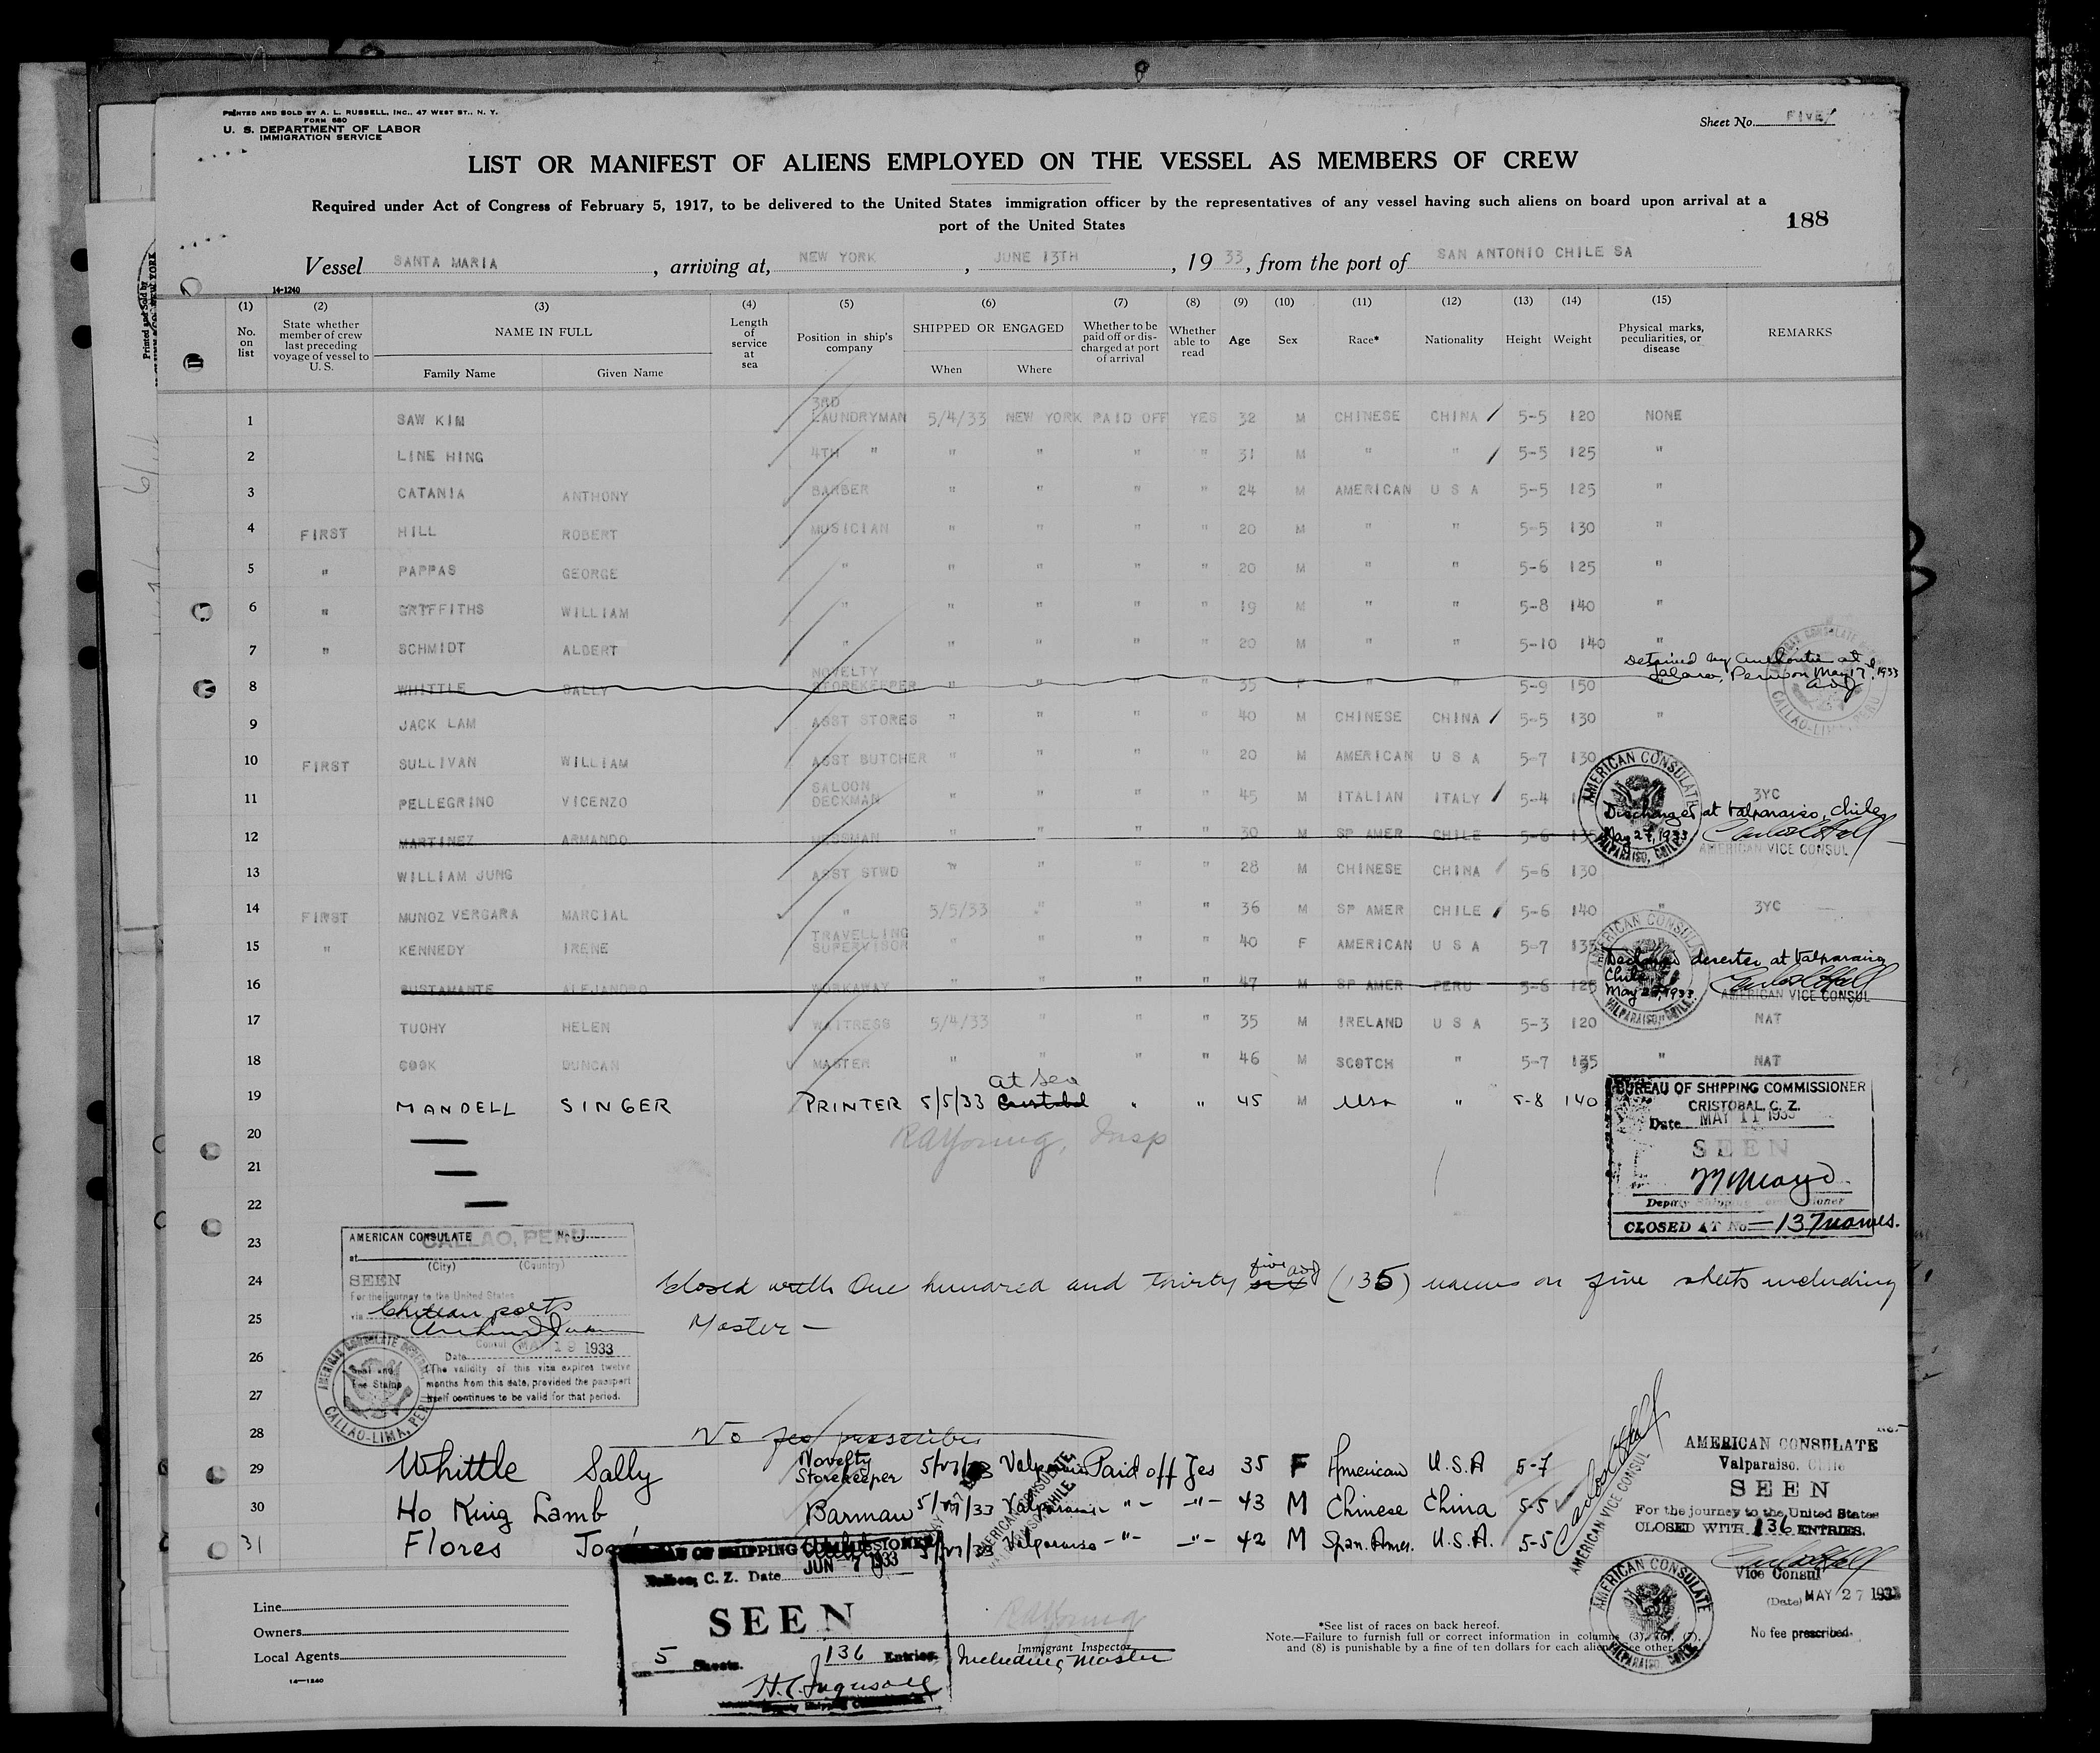 PRINTED AND SOLD BY A. L. RUSSELL, INC., 47 WEST ST., N. Y.
FORM 680
U. S. DEPARTMENT OF LABOR
IMMIGRATION SERVICE
Sheet No. FIVE
LIST OR MANIFEST OF ALIENS EMPLOYED ON THE VESSEL AS MEMBERS OF CREW
Required under Act of Congress of February 5, 1917, to be delivered to the United States immigration officer by the representatives of any vessel having such aliens on board upon arrival at a
port of the United States
188
Vessel SANTA MARIA, arriving at, NEW YORK, JUNE 13TH, 1933, from the port of SAN ANTONIO CHILE SA
14-1240
(1) No. on list (2) State whether member of crew last preceding voyage of vessel to U. S. (3) NAME IN FULL Family Name Given Name (4) Length of service at sea (5) Position in ship's company (6) SHIPPED OR ENGAGED When Where (7) Whether to be paid off or discharged at port of arrival (8) Whether able to read (9) Age (10) Sex (11) Race* (12) Nationality (13) Height (14) Weight (15) Physical marks, peculiarities, or disease REMARKS
1 SAW KIM 3RD LAUNDRYMAN 5/4/33 NEW YORK PAID OFF YES 32 M CHINESE CHINA 5-5 120 NONE
2 LINE HING 4TH " " " " " 31 M " " 5-5 125 "
3 CATANIA ANTHONY BARBER " " " " 24 M AMERICAN U S A 5-5 125 "
4 FIRST HILL ROBERT MUSICIAN " " " " 20 M " " 5-5 130 "
5 " PAPPAS GEORGE " " " " " 20 M " " 5-6 125 "
6 " GRIFFITHS WILLIAM " " " " " 19 M " " 5-8 140 "
7 " SCHMIDT ALBERT " " " " " 20 M " " 5-10 140 "
8 WHITTLE SALLY NOVELTY STOREKEEPER " " " " 35 F " " 5-9 150 Detained by Authorities at Talara, Peru on May 17, 1933
9 JACK LAM ASST STORES " " " " 40 M CHINESE CHINA 5-5 130 "
10 FIRST SULLIVAN WILLIAM ASST BUTCHER " " " " 20 M AMERICAN U S A 5-7 130
11 PELLEGRINO VICENZO SALOON DECKMAN " " " " 45 M ITALIAN ITALY 5-4 3YC
12 MARTINEZ ARMANDO MESSMAN " " " " 30 M SP AMER CHILE 5-6 135 Discharged at Valparaiso, Chile May 27, 1933 AMERICAN VICE CONSUL
13 WILLIAM JUNG ASST STWD " " " " 28 M CHINESE CHINA 5-6 130
14 FIRST MUNOZ VERGARA MARCIAL " 5/5/33 " " " 36 M SP AMER CHILE 5-6 140 " 3YC
15 " KENNEDY IRENE TRAVELLING SUPERVISOR " " " " 40 F AMERICAN U S A 5-7 135
16 BUSTAMANTE ALEJANDRO WORKAWAY " " " " 47 M SP AMER PERU 5-6 126 Declared deserter at Valparaiso Chile May 1933. AMERICAN VICE CONSUL
17 TUOHY HELEN WAITRESS 5/4/33 " " " 35 M IRELAND U S A 5-3 120 NAT
18 COOK DUNCAN MASTER " " " " 46 M SCOTCH " 5-7 135 " NAT
19 MANDELL SINGER PRINTER 5/5/33 at Sea Cristobal " " 45 M USA " 5-8 140
RA Young, Insp
20
21
22
23
24
25
26
27
28
AMERICAN CONSULATE
CALLAO-LIMA, PERU
BUREAU OF SHIPPING COMMISSIONER
CRISTOBAL, C. Z.
Date MAY 11 1933
SEEN
Deputy Shipping Commissioner
CLOSED AT No. — 137 names.
AMERICAN CONSULATE No.
at CALLAO, PERU
(City) (Country)
SEEN
For the journey to the United States
via Chilean ports
Consul
Date MAY 19 1933
The validity of this visa expires twelve
months from this date, provided the passport
itself continues to be valid for that period.
Fee Stamp
AMERICAN CONSULATE GENERAL
CALLAO-LIMA, PERU
Closed with One hundred and thirty six five (135) names on five sheets including
Master —
No fee prescribed
29 Whittle Sally Novelty Storekeeper 5/27/33 Valparaiso Paid off Yes 35 F American U.S.A 5-7
30 Ho King Lamb Barman 5/27/33 Valparaiso -"- -"- 43 M Chinese China 5-5
31 Flores 5/27/33 Valparaiso -"- -"- 42 M Span. Amer. U.S.A. 5-5
AMERICAN CONSULATE
VALPARAISO, CHILE
AMERICAN VICE CONSUL
AMERICAN CONSULATE
Valparaiso, Chile
SEEN
For the journey to the United States
CLOSED WITH 136 ENTRIES.
Vice Consul
(Date) MAY 27 1933
No fee prescribed.
BUREAU OF SHIPPING COMMISSIONER
Balboa, C. Z. Date JUN 7 1933
SEEN
5 Sheets. 136 Entries.
Including Master
H.C. Ingersoll
Deputy Shipping Commissioner
RA Young
Immigrant Inspector
Line
Owners
Local Agents
14—1240
*See list of races on back hereof.
Note.—Failure to furnish full or correct information in columns (3), (6), (7),
and (8) is punishable by a fine of ten dollars for each alien. See other